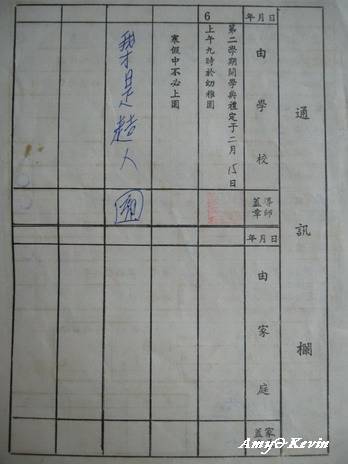 通訊欄
年月日
由學校
導師
蓋章
年月日
由家庭
家
蓋
6
第二學期開學典禮定于二月15日
上午九時於幼稚園
寒假中不必上園
我是超人
Amy&Kevin